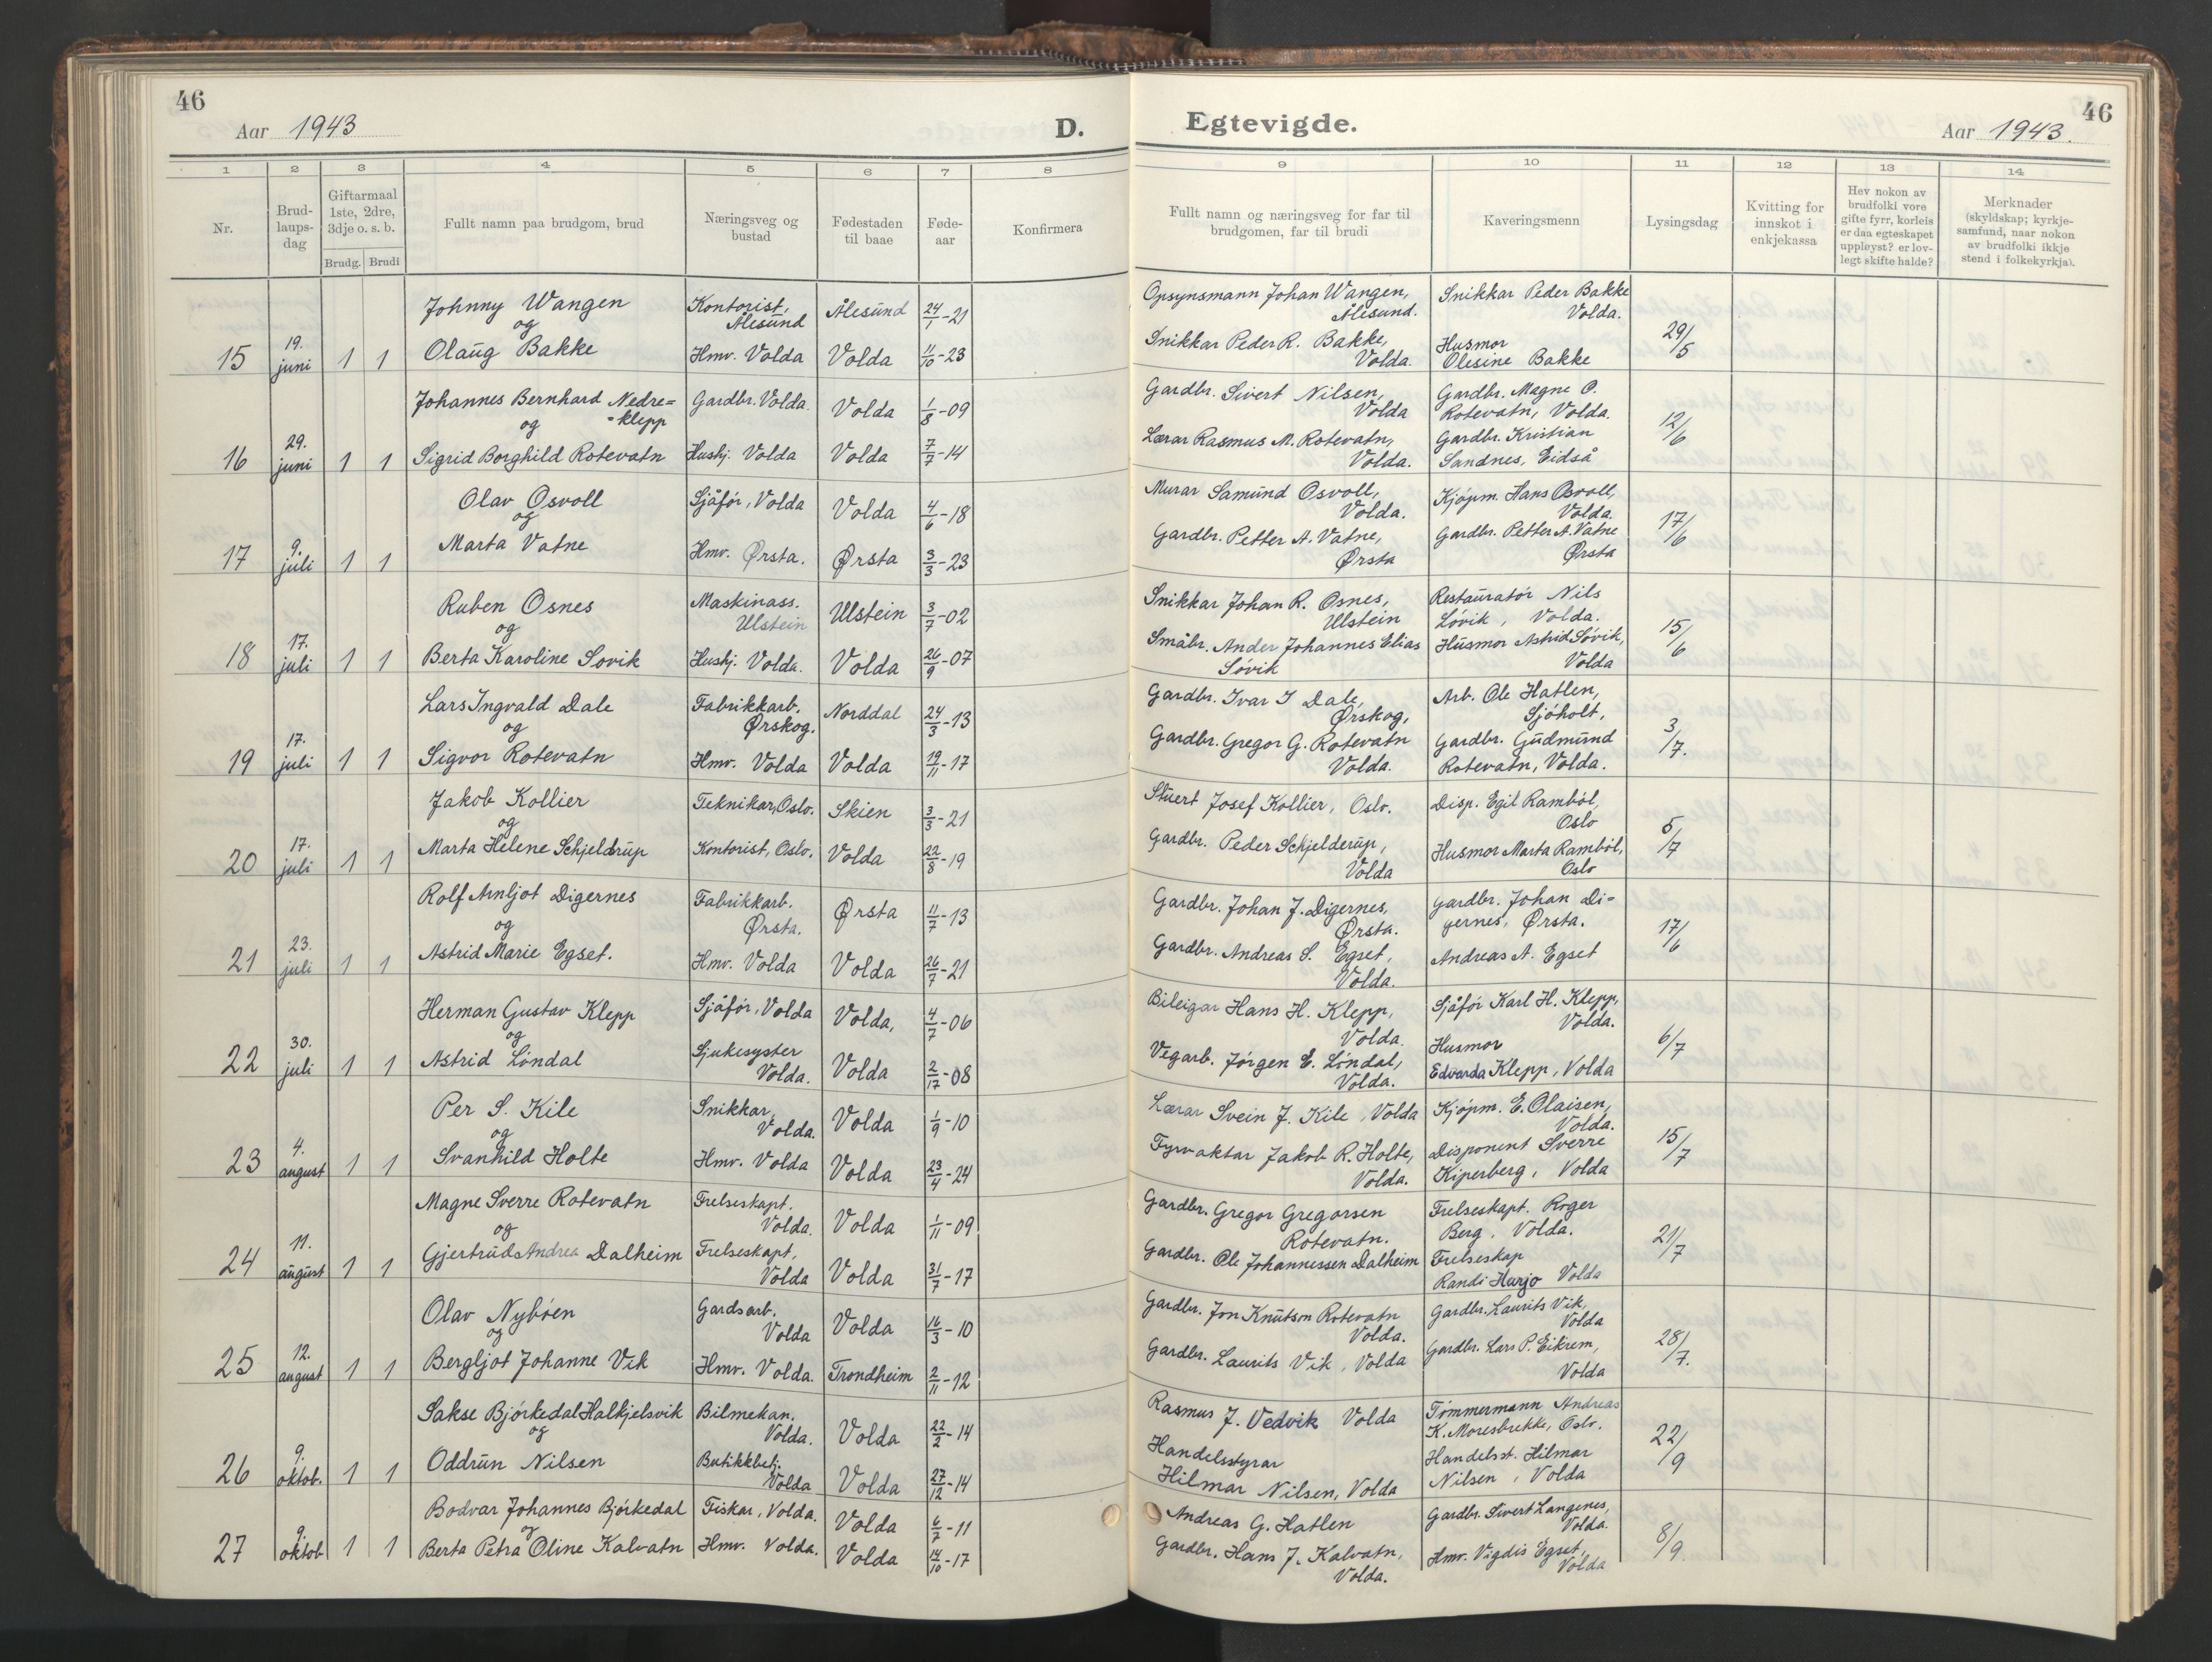 46
Aar 1943
D.
1 2 3 4 5 6 7 8
Nr.
Brud-
laups-
dag
Giftarmaal
1ste, 2dre,
3dje o. s. b.
Brudg. Brudi
Fullt namn paa brudgom, brud
Næringsveg og
bustad
Fødestaden
til baae
Føde-
aar
Konfirmera
Johnny Wangen Kontorist, Ålesund Ålesund 24/1-21
og
15 19. juni 1 1 Olaug Bakke Hmv. Volda Volda 11/10-23
Johannes Bernhard Nedre= Gardbr. Volda. Volda 1/8-09
=klepp
og
16 29. juni 1 1 Sigrid Borghild Rotevatn Hushj. Volda Volda 7/7-14
Olav Osvoll Sjåfør, Volda Volda 4/6-18
og
17 9. juli 1 1 Marta Vatne Hmv. Ørsta. Ørsta 3/3-23
Ruben Osnes Maskinass. Ulstein Ulstein 3/7-02
og
18 17. juli 1 1 Berta Karoline Sovik Hushj. Volda. Volda 26/9-07
Lars Ingvald Dale Fabrikkarb. Ørskog. Norddal 24/3-13
og
19 17. juli 1 1 Sigvor Rotevatn Hmv. Volda Volda 19/11-17
Jakob Kollier Teknikar, Oslo. Skien 3/3-21
og
20 17. juli 1 1 Marta Helene Schjeldrup Kontorist, Oslo. Volda 22/8-19
Rolf Arnljot Digernes Fabrikkarb. Ørsta. Ørsta 11/7-13
og
21 23. juli 1 1 Astrid Marie Egset. Hmv. Volda Volda 26/7-21
Herman Gustav Klepp Sjåfør, Volda Volda, 4/7-06
og
22 30. juli 1 1 Astrid Löndal Sjukesyster Volda. Volda 2/17-08
Per S. Kile Snikkar, Volda. Volda 1/9-10
og
23 4. august 1 1 Svanhild Holte Hmv. Volda Volda 23/4-24
Magne Sverre Rotevatn Frelseskapt. Volda. Volda 1/11-09
og
24 11. august 1 1 Gjertrud Andrea Dalheim Frelseskapt, Volda Volda 31/7-17
Olav Nybøen Gardsarb. Volda Volda 16/3-10
og
25 12. august 1 1 Bergljot Johanne Vik Hmv. Volda. Trondheim 2/11-12
Sakse Bjørkedal Halkjelsvik Bilmekan. Volda. Volda 22/2-14
og
26 9. oktob. 1 1 Oddrun Nilsen Butikkbetj. Volda Volda 27/12-14
Bodvar Johannes Bjørkedal Fiskar, Volda. Volda 6/7-11
og
27 9. oktob 1 1 Berta Petra Oline Kalvatn Hmv. Volda. Volda 14/10-17
Egtevigde.
46
Aar 1943.
9 10 11 12 13 14
Fullt namn og næringsveg for far til
brudgomen, far til brudi
Kaveringsmenn
Lysingsdag
Kvitting for
innskot i
enkjekassa
Hev nokon av
brudfolki vore
gifte fyrr, korleis
er daa egteskapet
uppløyst? er lov-
legt skifte halde?
Merknader
(skyldskap; kyrkje-
samfund, naar nokon
av brudfolki ikkje
stend i folkekyrkja).
Opsynsmann Johan Wangen, Snikkar Peder Bakke
Ålesund. Volda.
Snikkar Peder R. Bakke, Husmor 29/5
Volda. Olesine Bakke
Gardbr. Sivert Nilsen, Gardbr. Magne O.
Volda Rotevatn, Volda. 12/6
Lærar Rasmus M. Rotevatn, Gardbr. Kristian
Volda. Sandnes, Eidså
Murar Samund Osvoll, Kjøpm. Hans Osvoll,
Volda. Volda. 17/6
Gardbr. Petter A. Vatne, Gardbr. Petter A. Vatne
Ørsta Ørsta
Snikkar Johan R. Osnes, Restauratør Nils
Ulstein Løvik, Volda. 15/6
Småbr. Ander Johannes Elias Husmor Astrid Sövik,
Sövik Volda
Gardbr. Ivar I Dale, Arb. Ole Hatlen,
Ørskog, Sjøholt, 3/7.
Gardbr. Gregor G. Rotevatn Gardbr. Gudmund
Volda. Rotevatn, Volda.
Stuert Josef Kollier, Oslo. Disp. Egil Rambøl,
Oslo 5/7
Gardbr. Peder Schjelderup, Husmor Marta Rambøl,
Volda Oslo
Gardbr. Johan J. Digernes, Gardbr. Johan Di=
Ørsta. gernes, Ørsta. 17/6
Gardbr. Andreas S. Egset, Andreas A. Egset
Volda.
Bileigar Hans H. Klepp, Sjåfør Karl H. Klepp,
Volda. Volda.
Vegarb. Jørgen E. Löndal, Husmor 6/7
Volda. Edvarda Klepp, Volda
Lærar Svein J. Kile, Volda Kjøpm. E. Olaisen,
Volda. 15/7
Fyrvaktar Jakob R. Holte, Disponent Sverre
Volda. Kiperberg, Volda
Gardbr. Gregor Gregorsen Frelseskapt. Roger
Rotevatn. Berg, Volda. 21/7
Gardbr. Ole Johannessen Dalheim Frelseskap
Randi Harjo Volda
Gardbr. Jon Knutson Rotevatn Gardbr. Laurits Vik,
Volda. Volda 28/7.
Gardbr. Laurits Vik, Volda Gardbr. Lars P. Eikrem,
Volda
Rasmus J. Vedvik Volda Tømmermann Andreas
K. Moresbekke, Oslo. 22/9
Handelsstyrar Handelsst. Hilmar
Hilmar Nilsen, Volda Nilsen, Volda
Andreas G. Hatlen Gardbr. Sivert Langenes,
Volda. 8/9.
Gardbr. Hans J. Kalvatn, Hmv. Vigdis Egset,
Volda. Volda